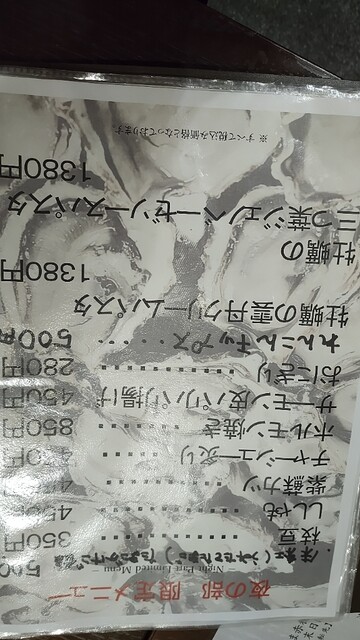 夜の部 限定メニュー
Night Part Limited Menu
500
枝豆 350円
ししゃも 450円
紫蘇カツ
チャーシュー炙り
ホルモン焼き 850円
サーモン皮パリパリ揚げ 450円
おにぎり 280円
れんこんチップス 500円
牡蠣の雲丹クリームパスタ
1380円
牡蠣の
三つ葉ジェノベーゼソースパスタ
1380円
※すべて税込み価格となっております